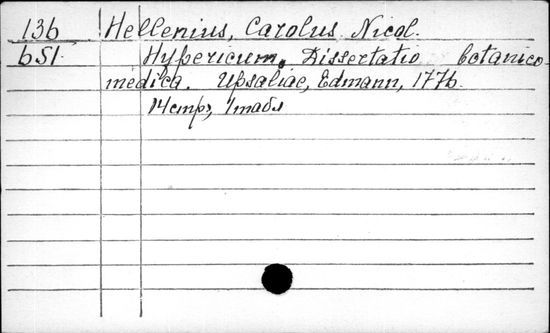 136 Hellenius, Carolus Nicol.
651. Hypericum. Dissertatio botanico-
medica. Upsaliae, Edmann, 1776.
14 стр, 1 табл